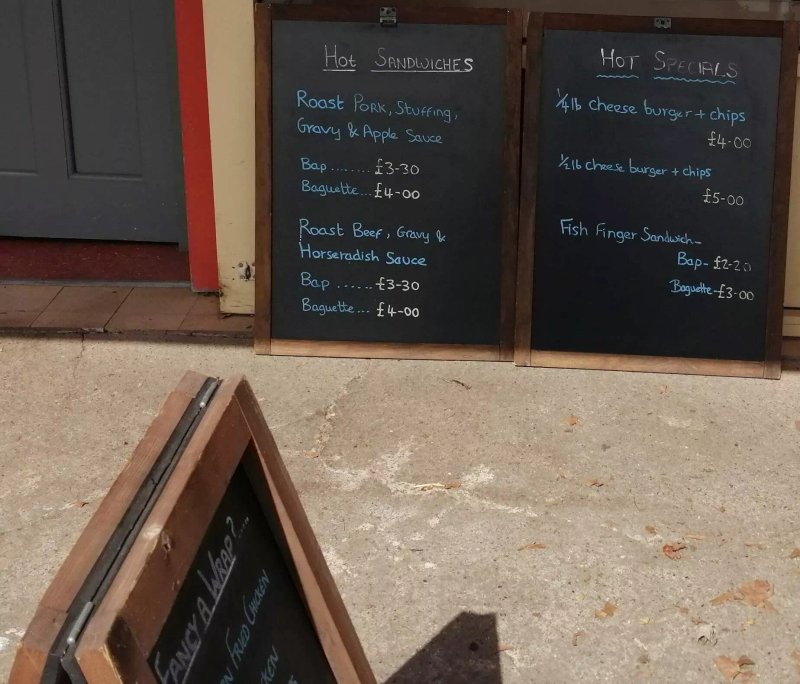 Hot Sandwiches
Roast Pork, Stuffing,
Gravy & Apple Sauce
Bap ........ £3-30
Baguette... £4-00
Roast Beef, Gravy &
Horseradish Sauce
Bap ...... £3-30
Baguette... £4-00
Hot Specials
1/4 lb cheese burger + chips
£4-00
1/2 lb cheese burger + chips
£5-00
Fish Finger Sandwich-
Bap- £2-20
Baguette- £3-00
Fancy a Wrap?....
Fried Chicken